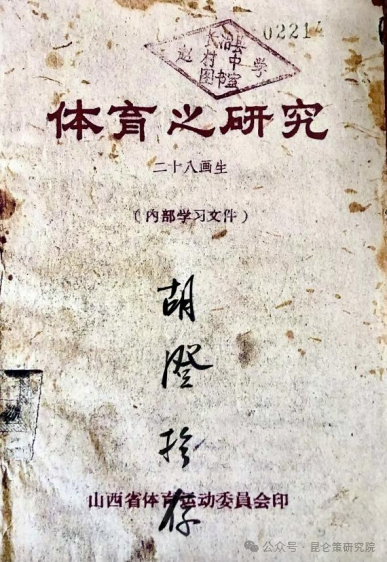 02217
长治县
赵村中学
图书室
体育之研究
二十八画生
（内部学习文件）
胡
澄
拾
存
山西省体育运动委员会印
公众号 · 昆仑策研究院